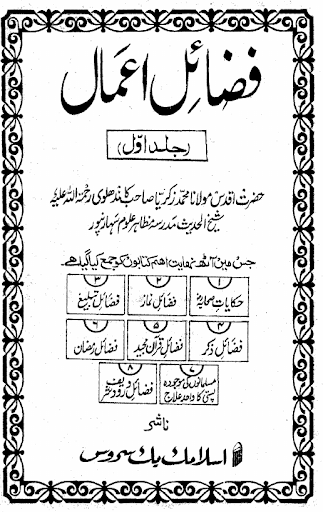 فضائل اعمال
(جلد اوّل)
حضرت اقدس مولانا محمد زکریا صاحب کاندھلوی رحمۃ اللہ علیہ
شیخ الحدیث مدرسہ مظاہر علوم سہارنپور
جس میں آٹھ نہایت اہم کتابوں کو جمع کیا گیا ہے۔
۱ ۲ ۳
حکایات صحابہؓ فضائل نماز فضائل تبلیغ
۴ ۵ ۶
فضائل ذکر فضائل قرآن مجید فضائل رمضان
۷ ۸
مسلمانوں کی موجودہ پستی کا واحد علاج
فضائل درود شریف
ناشر
اسلامک بک سروس